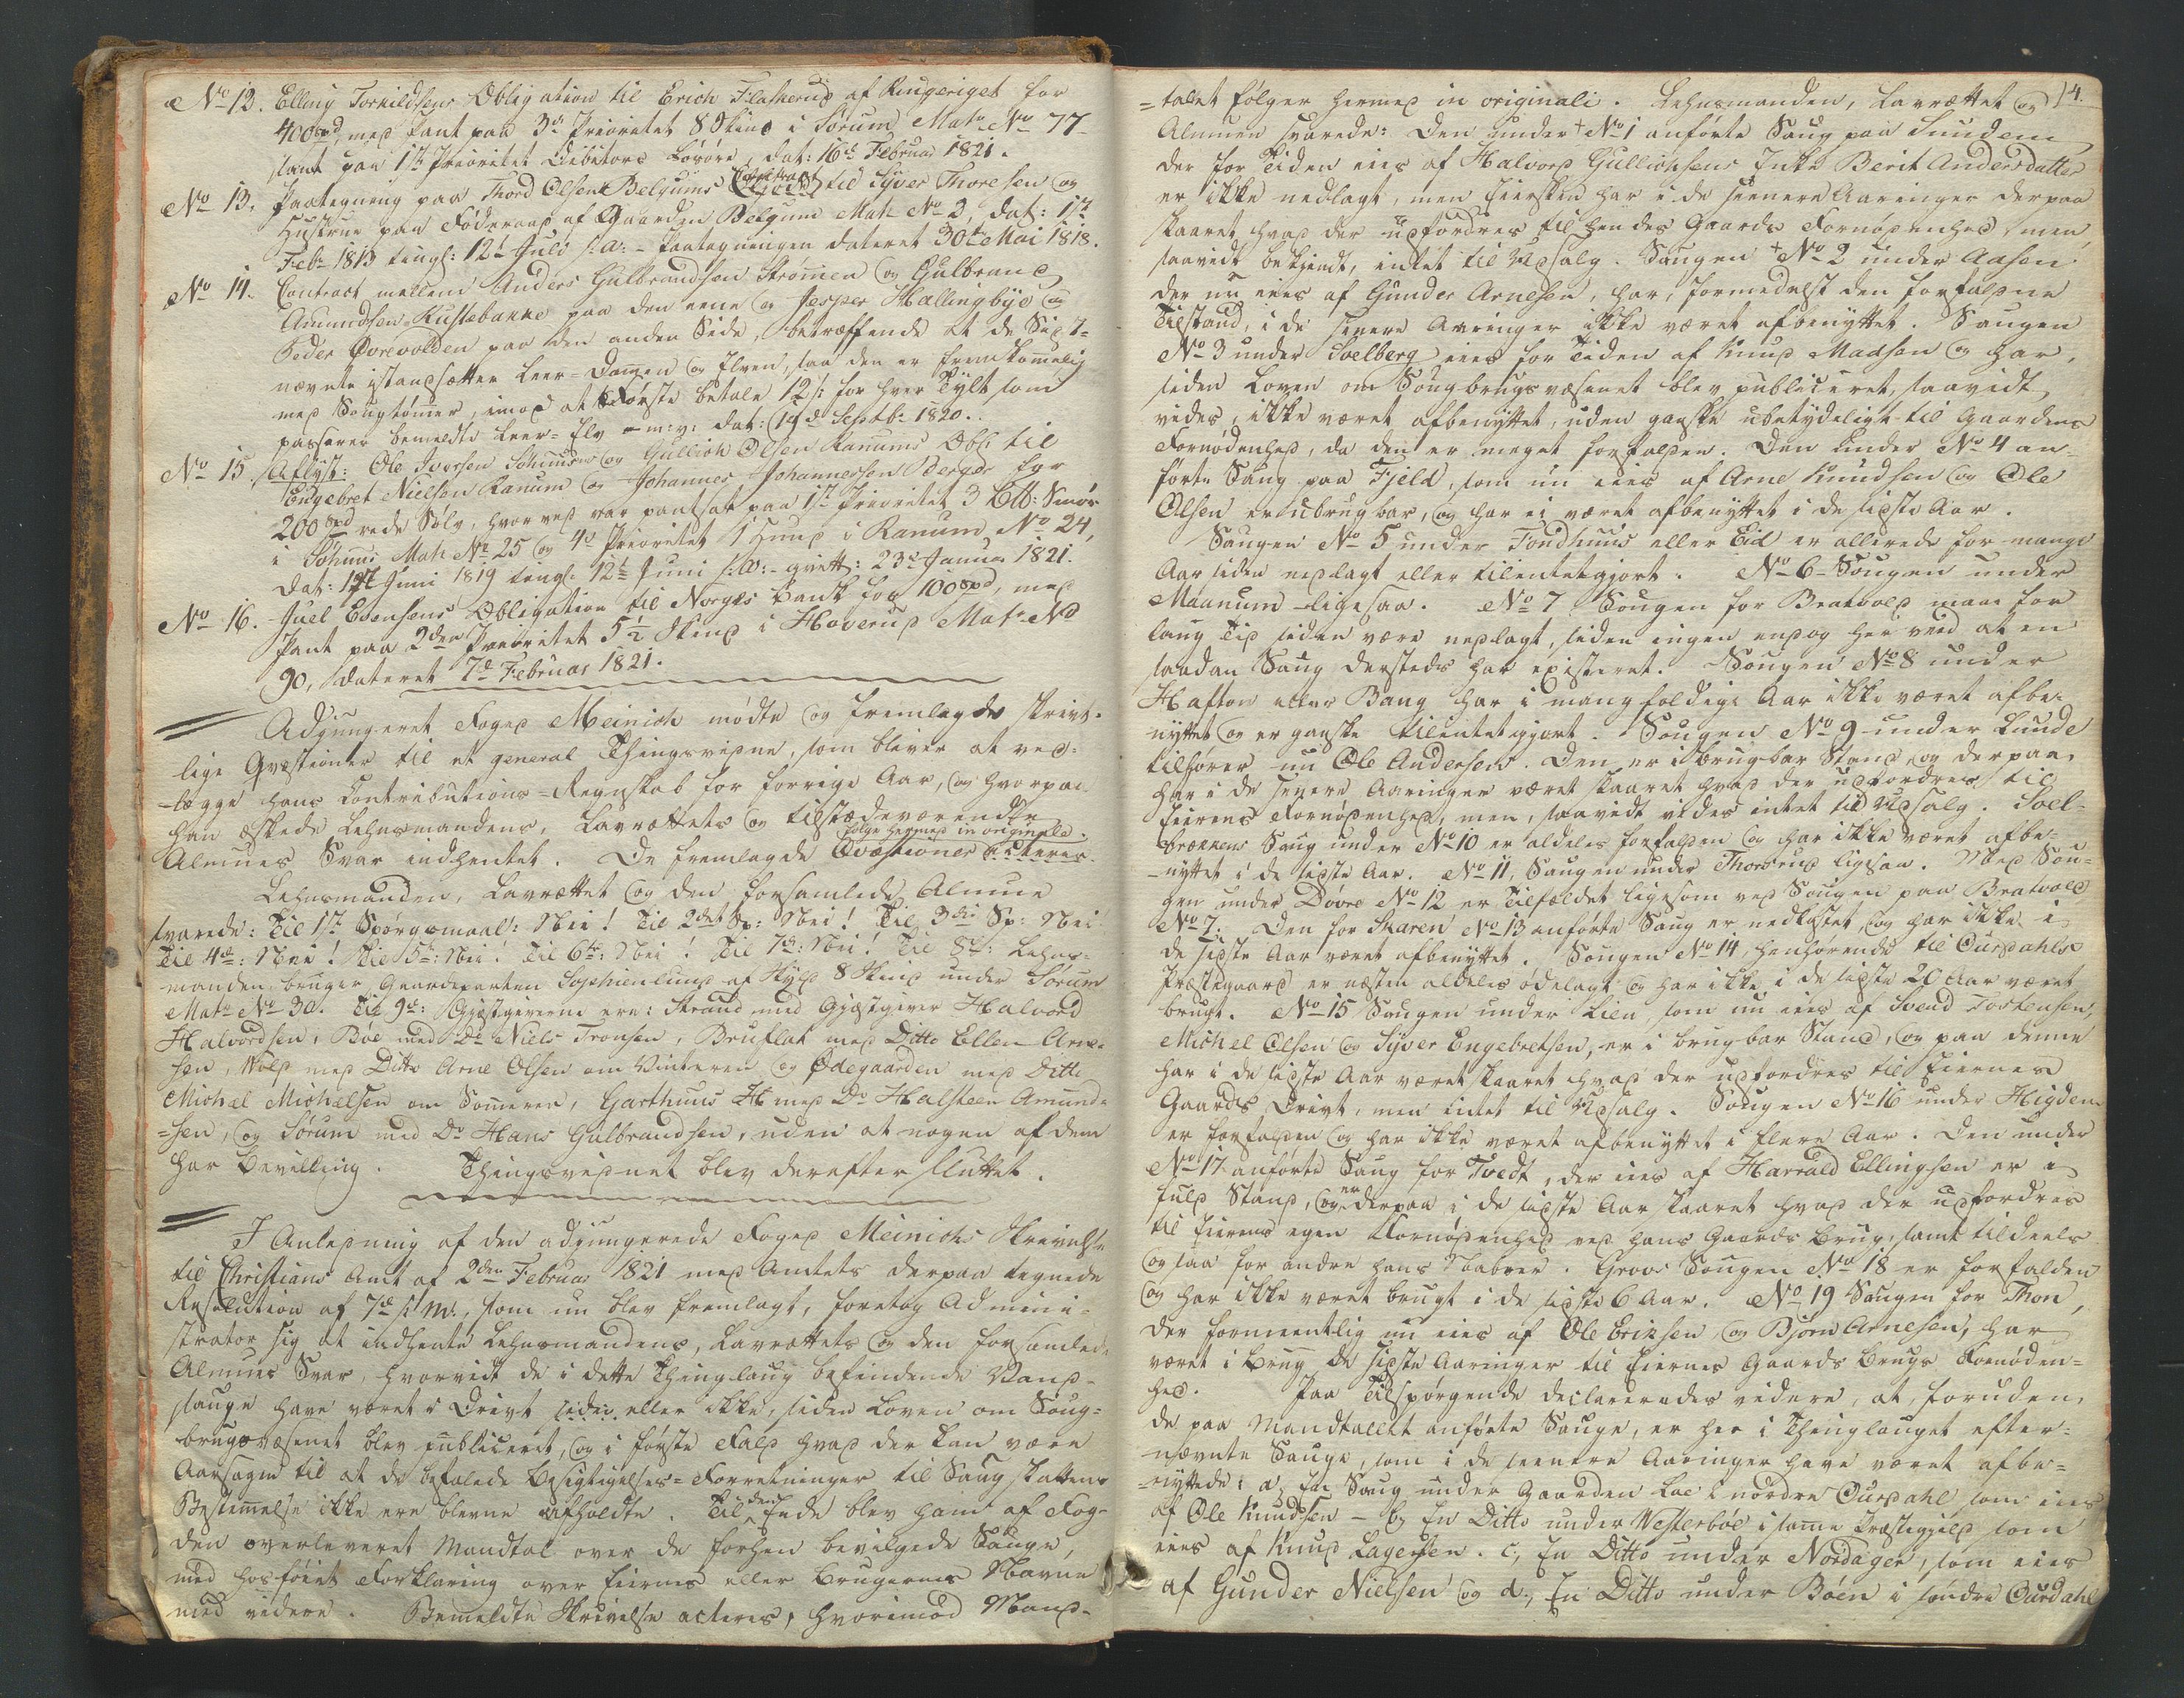 No 12. Elling Torkildsens Obligation til Erich Flaskerud af Ringeriget for
400 Spd, med Pant paa 3die Prioritet 8 Skind i Sørum Mat: No 77
samt paa 1ste Prioritet Debitors Løsøre, dat: 16de Februar 1821.
No 13. Paategning paa Thord Olsens Belgums Contract til Syver Thoresen og
Hustrue paa Føderaad af Gaarden Belgum Mat: No 2, dat: 17de
Feb: 1813 tingl: 12te Juli s: a: - Paategningen dateret 30te Mai 1818.
No 14. Contract mellem Anders Gulbrandsen Strømmen og Gulbrand
Amundsen Kustebakke paa den eene og Jesper Hallingbye og
Peder Øvrevolden paa den anden Side, betræffende at de Sidst-
nævnte istandsætter Leer-Dammen og Elven, saa den er fremkommelig
med Sougtømmer, imod at Første betale 12 s: for hver Tylt som
passerer bemeldte Leer-Elv m: v: dat: 19de Septb: 1820.
No 15. Aflyst: Ole Iversen Søhuus og Gullich Olsen Ranums Obl: til
Engebret Nielsen Ranum og Johannes Johannessen Berger for
200 Spd rede Sølv, hvorved var pantsat paa 1ste Prioritet 3 Lb: Smør
i Søhuus Mat: No 25 og 4de Prioritet 1 Hund i Ranum No 24,
dat: 12te Juni 1819 tingl: 12te Juni s: a: - qvitt: 23de Januar 1821.
No 16. Juel Evensens Obligation til Norges Bank for 100 Spd, med
Pant paa 2den Prioritet 5½ Skind i Haverud Mat: No
90, dateret 7de Februar 1821.
Adjungeret Foged Meinich mødte og fremlagde skrivt-
lige Qvæstioner til et general Thingsvidne, som bliver at ved-
lægge hans Contributions-Regnskab for forrige Aar, og hvorpaa
han æskede Lehnsmandens, Lavrættets og tilstædeværende
følge hermed in originale.
Almues Svar indhentet. De fremlagde Qvæstioner acteres.
Lehnsmanden, Lavrættet og den forsamlede Almue
svarede: Til 1ste Spørgsmaal: Nei! Til 2det Sp: Nei! Til 3die Sp: Nei
Til 4de: Nei! Til 5te: Nei! Til 6te: Nei! Til 7de: Nei! Til 8de: Lehns-
manden bruger Gaardeparten Sophienlund af Skyld 8 Skind under Sørum
Mat: No 30. Til 9de: Gjæstgiverne ere: Strand med Gjæstgiver Halvord
Halvordsen, Bøe med Do Niels Tronsen, Bruflat med Ditto Ellen Arne-
sen, Vold med Ditto Arne Olsen om Vinteren og Ødegaarden med Ditto
Michael Michaelsen om Sommeren, Garthuus med Do Halsteen Amund-
sen, og Sørum med Do Hans Gulbrandsen, uden at nogen af dem
har Bevilling. Thingsvidnet blev derefter sluttet.
I Anledning af den adjungerede Foged Meinichs Skrivelse
til Christians Amt af 2den Februar 1821 med Amtets derpaa tegnede
Resolution af 7de s: M:, som nu blev fremlagt, foretog Admini-
strator sig at indhente Lehnsmandens, Lavrættets og den forsamlede
Almues Svar, hvorvidt de i dette Thinglaug befindende Vand-
sauge have været i Drivt siden eller ikke, siden Loven om Soug-
brugsvæsenet blev publiceret, og i første Fald hvad der kan være
Aarsagen til at de befalede Besigtigelses-Forretninger til Saugskattens
Bestemmelse ikke ere blevne afholdte. Til den Ende blev ham af Fog-
den overleveret Mandtal over de forhen bevilgede Sauge,
med hosføiet Forklaring over Eiernes eller Brugernes Navne
med videre. Bemeldte Skrivelse acteres, hvorimod Mand-
14.
-talet følger hermed in originali. Lehnsmanden, Lavrættet og
Almuen svarede: Den under + No 1 anførte Saug paa Sundem
der for Tiden eies af Halvord Gullichsens Enke Berit Andersdatter
er ikke nedlagt, men Eiersken har i de seenere Aaringer derpaa
skaaret hvad der udfordres til hendes Gaards Fornødenhed, men,
saavidt bekjendt, intet til Udsalg. Saugen + No 2 under Aasen
der nu eies af Gunder Arnesen, har, formedelst den forfaldne
Tilstand, i de senere Aaringer ikke været afbenyttet. Saugen
No 3 under Soelberg eies for Tiden af Knud Madsen og har,
siden Loven om Sougbrugsvæsenet blev publiceret, saavidt
vides, ikke været afbenyttet, uden ganske ubetydeligt til Gaardens
Fornødenhed, da den er meget forfalden. Den under No 4 an-
førte Saug paa Fjeld, som nu eies af Arne Knudsen og Ole
Olsen er ubrugbar, og har ei været afbenyttet i de sidste Aar.
Saugen No 5 under Fondhuus eller Eid er allerede for mange
Aar siden nedlagt eller tilintetgjort. No 6 Sougen under
Maanum ligesaa. No 7 Sougen for Bratvold maae for
lang Tid siden være nedlagt, siden ingen endog her veed at en
saadan Saug dersteds har existeret. Sougen No 8 under
Hafton eller Bang har i mangfoldige Aar ikke været afbe-
nyttet og er ganske tilintetgjort. Sougen No 9 under Lunde
tilhører nu Ole Andersen. Den er i brugbar Stand og derpaa
har i de senere Aaringer været skaaret hvad der udfordres til
Eierens Fornødenhed, men, saavidt vides intet til Udsalg. Soel-
brækkens Saug under No 10 er aldeles forfalden og har ikke været afbe-
nyttet i de sidste Aar. No 11, Saugen under Thorsrud ligesaa. Med Sou-
gen under Døvre No 12 er Tilfældet ligesom ved Sougen paa Bratvold
No 7. Den for Skaren No 13 anførte Saug er nedkastet, og har ikke i
de sidste Aar været afbenyttet. Sougen No 14, henhørende til Ourdahls
Præstegaard er næsten aldeles ødelagt og har ikke i de sidste 20 Aar været
brugt. No 15 Saugen under Lien som nu eies af Svend Torkensen,
Michel Olsen og Syver Engebretsen, er i brugbar Stand, og paa denne
har i de sidste Aar været skaaret hvad der udfordres til Eiernes
Gaards Drivt, men intet til Udsalg. Sougen No 16 under Higden
er forfalden og har ikke været afbenyttet i flere Aar. Den under
No 17 anførte Saug for Tvedt, der eies af Harrald Ellingsen er i
fuld Stand, og er derpaa i de sidste Aar skaaret hvad der udfordres
til Eierens egen Fornødenhed ved hans Gaards Brug, samt tildeels
ogsaa for andre hans Naboer. Groos Sougen No 18 er forfalden
og har ikke været brugt i de sidste 6 Aar. No 19 Saugen for Thon,
der formeentlig nu eies af Ole Eriksen og Bjorn Arnesen, har
været i Brug de sidste Aaringer til Eiernes Gaards Brugs Fornøden-
hed. Paa Tilspørgende declareredes videre, at, foruden
de paa Mandtallet anførte Sauge, er her i Thinglauget efter-
nævnte Sauge, som i de seenere Aaringer have været afbe-
nyttede: a, En Saug under Gaarden Loe i nordre Ourdahl som eies
af Ole Knudsen - b, En Ditto under Vesterbøe i samme Præstegjeld som
eies af Knud Lagersen. c, En Ditto under Nordager, som eies
af Gunder Nielsen og d., En Ditto under Bøen i søndre Ourdahl